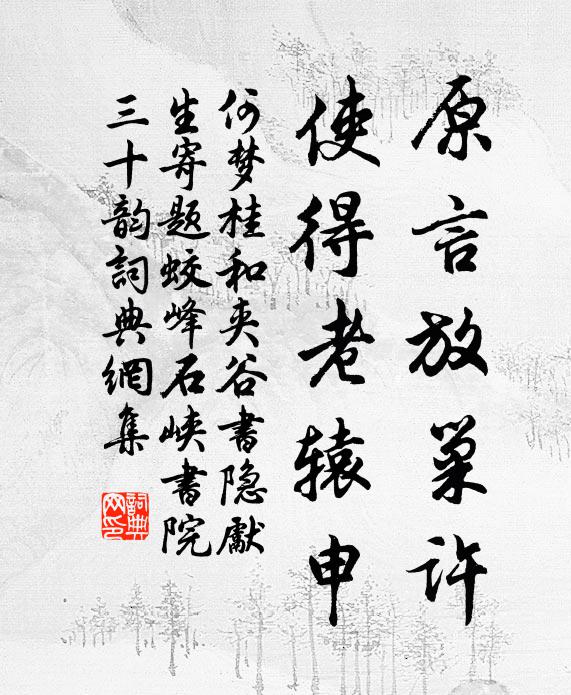 原言放巢许
使得老辕申
何梦桂和夹谷书隐献
生寄题蛟峰石峡书院
三十韵詞典網集
詞典
网印